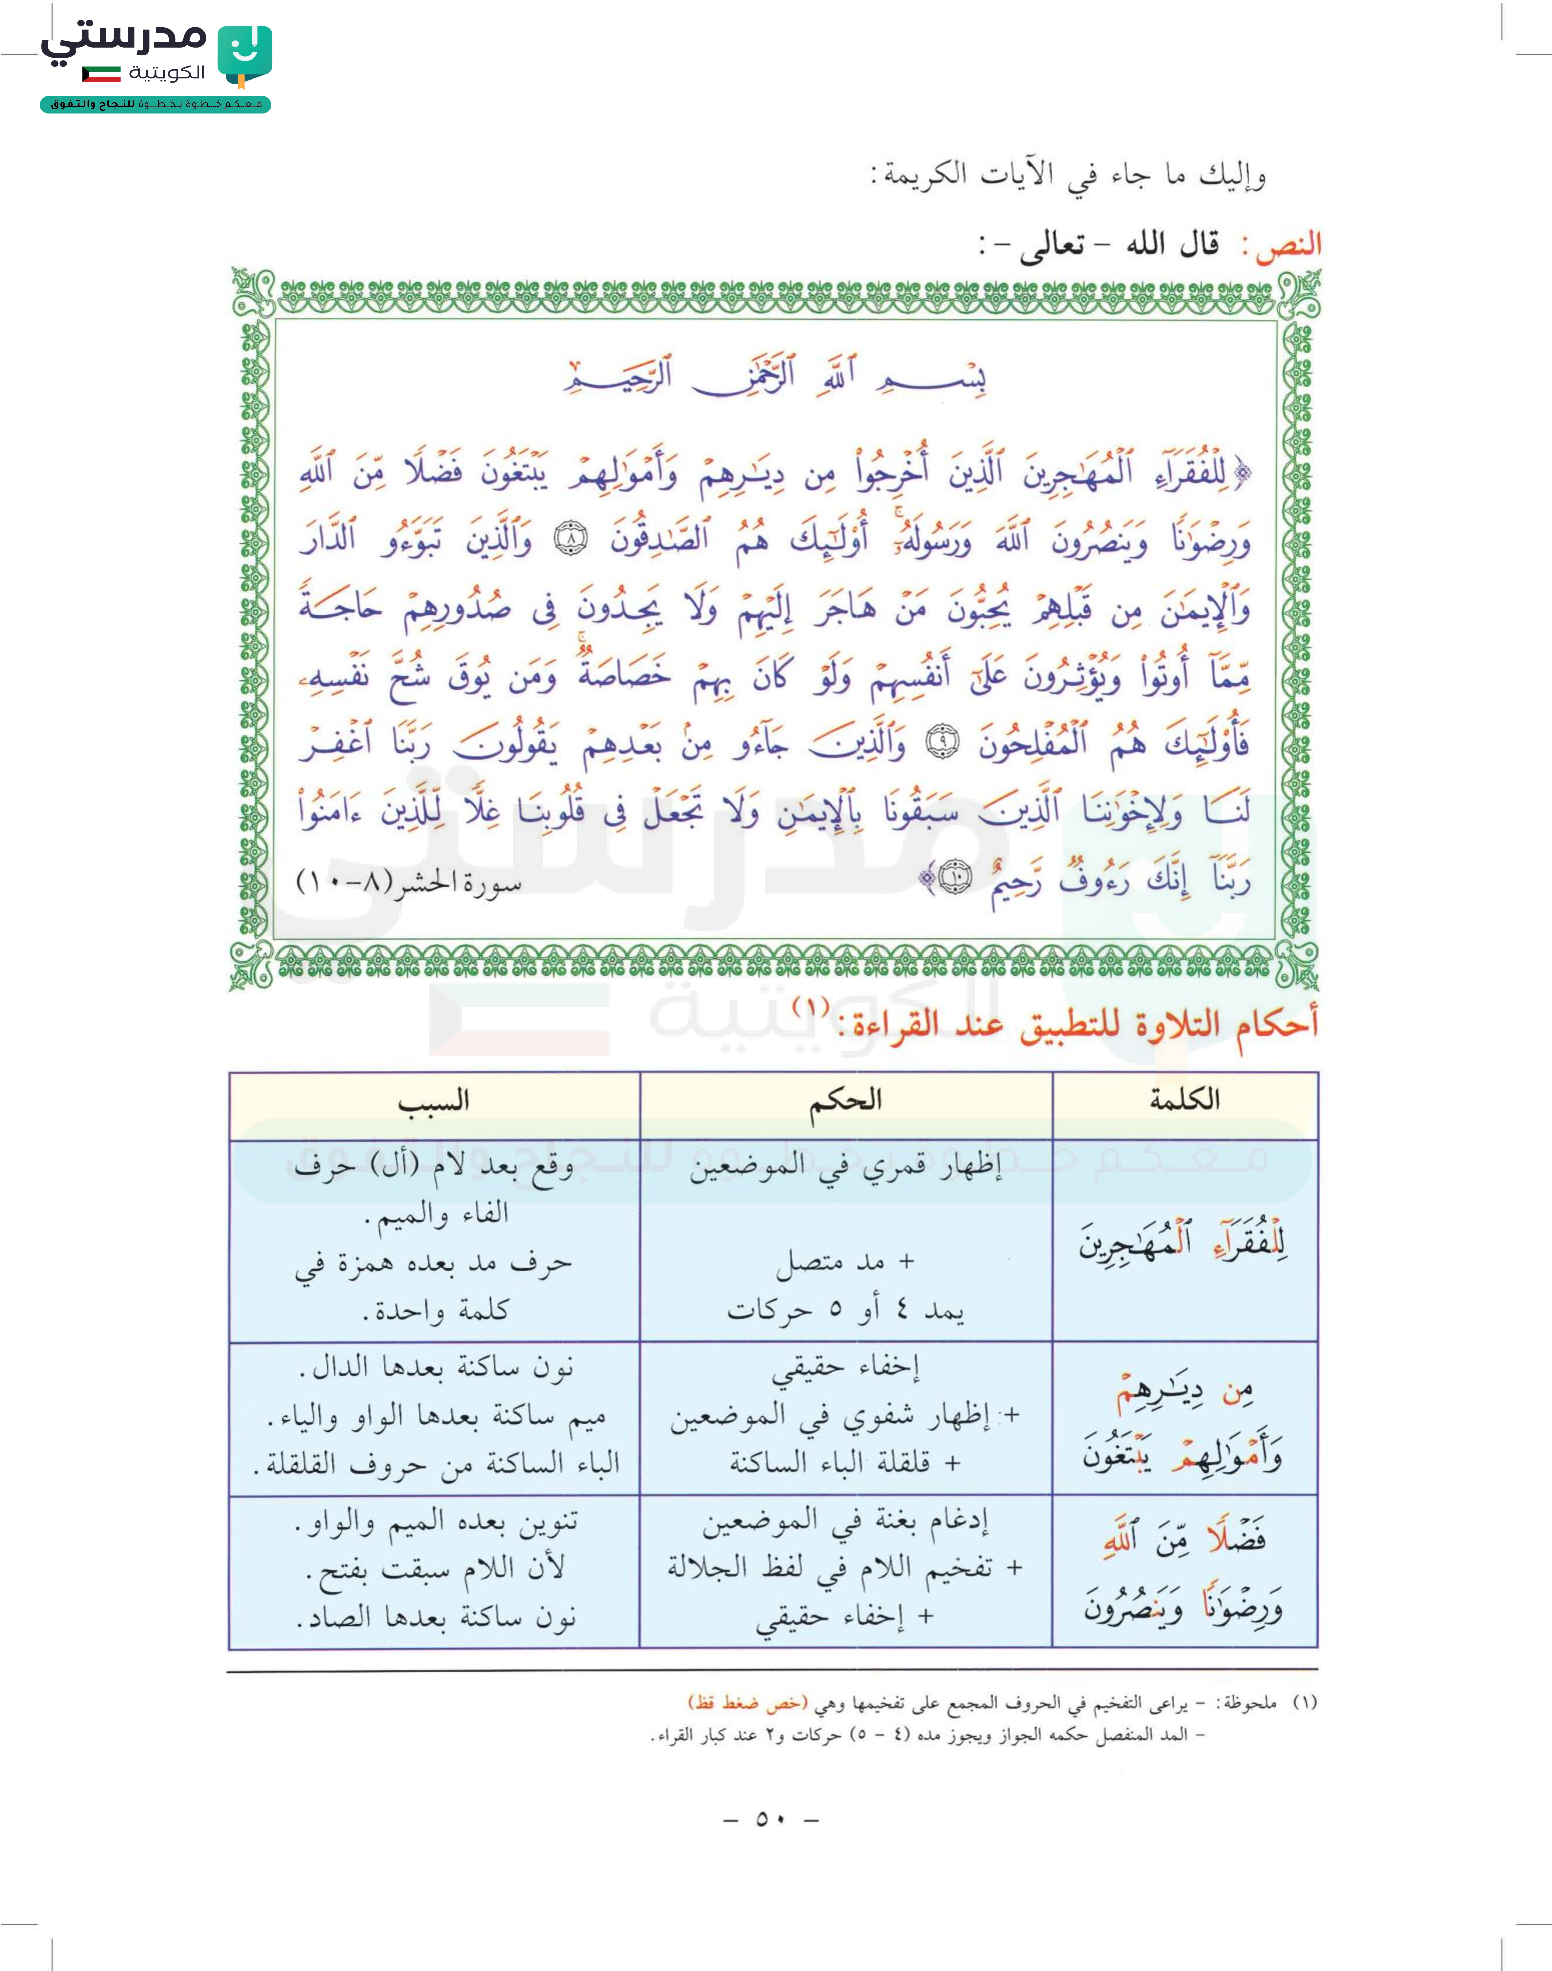 مدرستي
الكويتية
معكم خطوة بخطوة للنجاح والتفوق
وإليك ما جاء في الآيات الكريمة:
النص: قال الله - تعالى -:
بِسْمِ ٱللَّهِ ٱلرَّحْمَٰنِ ٱلرَّحِيمِ
﴿لِلْفُقَرَآءِ ٱلْمُهَٰجِرِينَ ٱلَّذِينَ أُخْرِجُوا۟ مِن دِيَٰرِهِمْ وَأَمْوَٰلِهِمْ يَبْتَغُونَ فَضْلًا مِّنَ ٱللَّهِ
وَرِضْوَٰنًا وَيَنصُرُونَ ٱللَّهَ وَرَسُولَهُۥٓ ۚ أُو۟لَٰٓئِكَ هُمُ ٱلصَّٰدِقُونَ ٨ وَٱلَّذِينَ تَبَوَّءُو ٱلدَّارَ
وَٱلْإِيمَٰنَ مِن قَبْلِهِمْ يُحِبُّونَ مَنْ هَاجَرَ إِلَيْهِمْ وَلَا يَجِدُونَ فِى صُدُورِهِمْ حَاجَةً
مِّمَّآ أُوتُوا۟ وَيُؤْثِرُونَ عَلَىٰٓ أَنفُسِهِمْ وَلَوْ كَانَ بِهِمْ خَصَاصَةٌ ۚ وَمَن يُوقَ شُحَّ نَفْسِهِۦ
فَأُو۟لَٰٓئِكَ هُمُ ٱلْمُفْلِحُونَ ٩ وَٱلَّذِينَ جَآءُو مِنۢ بَعْدِهِمْ يَقُولُونَ رَبَّنَا ٱغْفِرْ
لَنَا وَلِإِخْوَٰنِنَا ٱلَّذِينَ سَبَقُونَا بِٱلْإِيمَٰنِ وَلَا تَجْعَلْ فِى قُلُوبِنَا غِلًّا لِّلَّذِينَ ءَامَنُوا۟
رَبَّنَآ إِنَّكَ رَءُوفٌ رَّحِيمٌ ١٠﴾ سورة الحشر (٨-١٠)
أحكام التلاوة للتطبيق عند القراءة:(١)
الكلمة الحكم السبب
إظهار قمري في الموضعين وقع بعد لام (أل) حرف
الفاء والميم.
لِلْفُقَرَآءِ ٱلْمُهَٰجِرِينَ
+ مد متصل حرف مد بعده همزة في
يمد ٤ أو ٥ حركات كلمة واحدة.
إخفاء حقيقي نون ساكنة بعدها الدال.
مِن دِيَٰرِهِمْ
+ إظهار شفوي في الموضعين ميم ساكنة بعدها الواو والياء.
وَأَمْوَٰلِهِمْ يَبْتَغُونَ
+ قلقلة الباء الساكنة الباء الساكنة من حروف القلقلة.
إدغام بغنة في الموضعين تنوين بعده الميم والواو.
فَضْلًا مِّنَ ٱللَّهِ
+ تفخيم اللام في لفظ الجلالة لأن اللام سبقت بفتح.
وَرِضْوَٰنًا وَيَنصُرُونَ
+ إخفاء حقيقي نون ساكنة بعدها الصاد.
(١) ملحوظة: - يراعى التفخيم في الحروف المجمع على تفخيمها وهي (خص ضغط قظ)
- المد المنفصل حكمه الجواز ويجوز مده (٤ - ٥) حركات و٢ عند كبار القراء.
- ٥٠ -